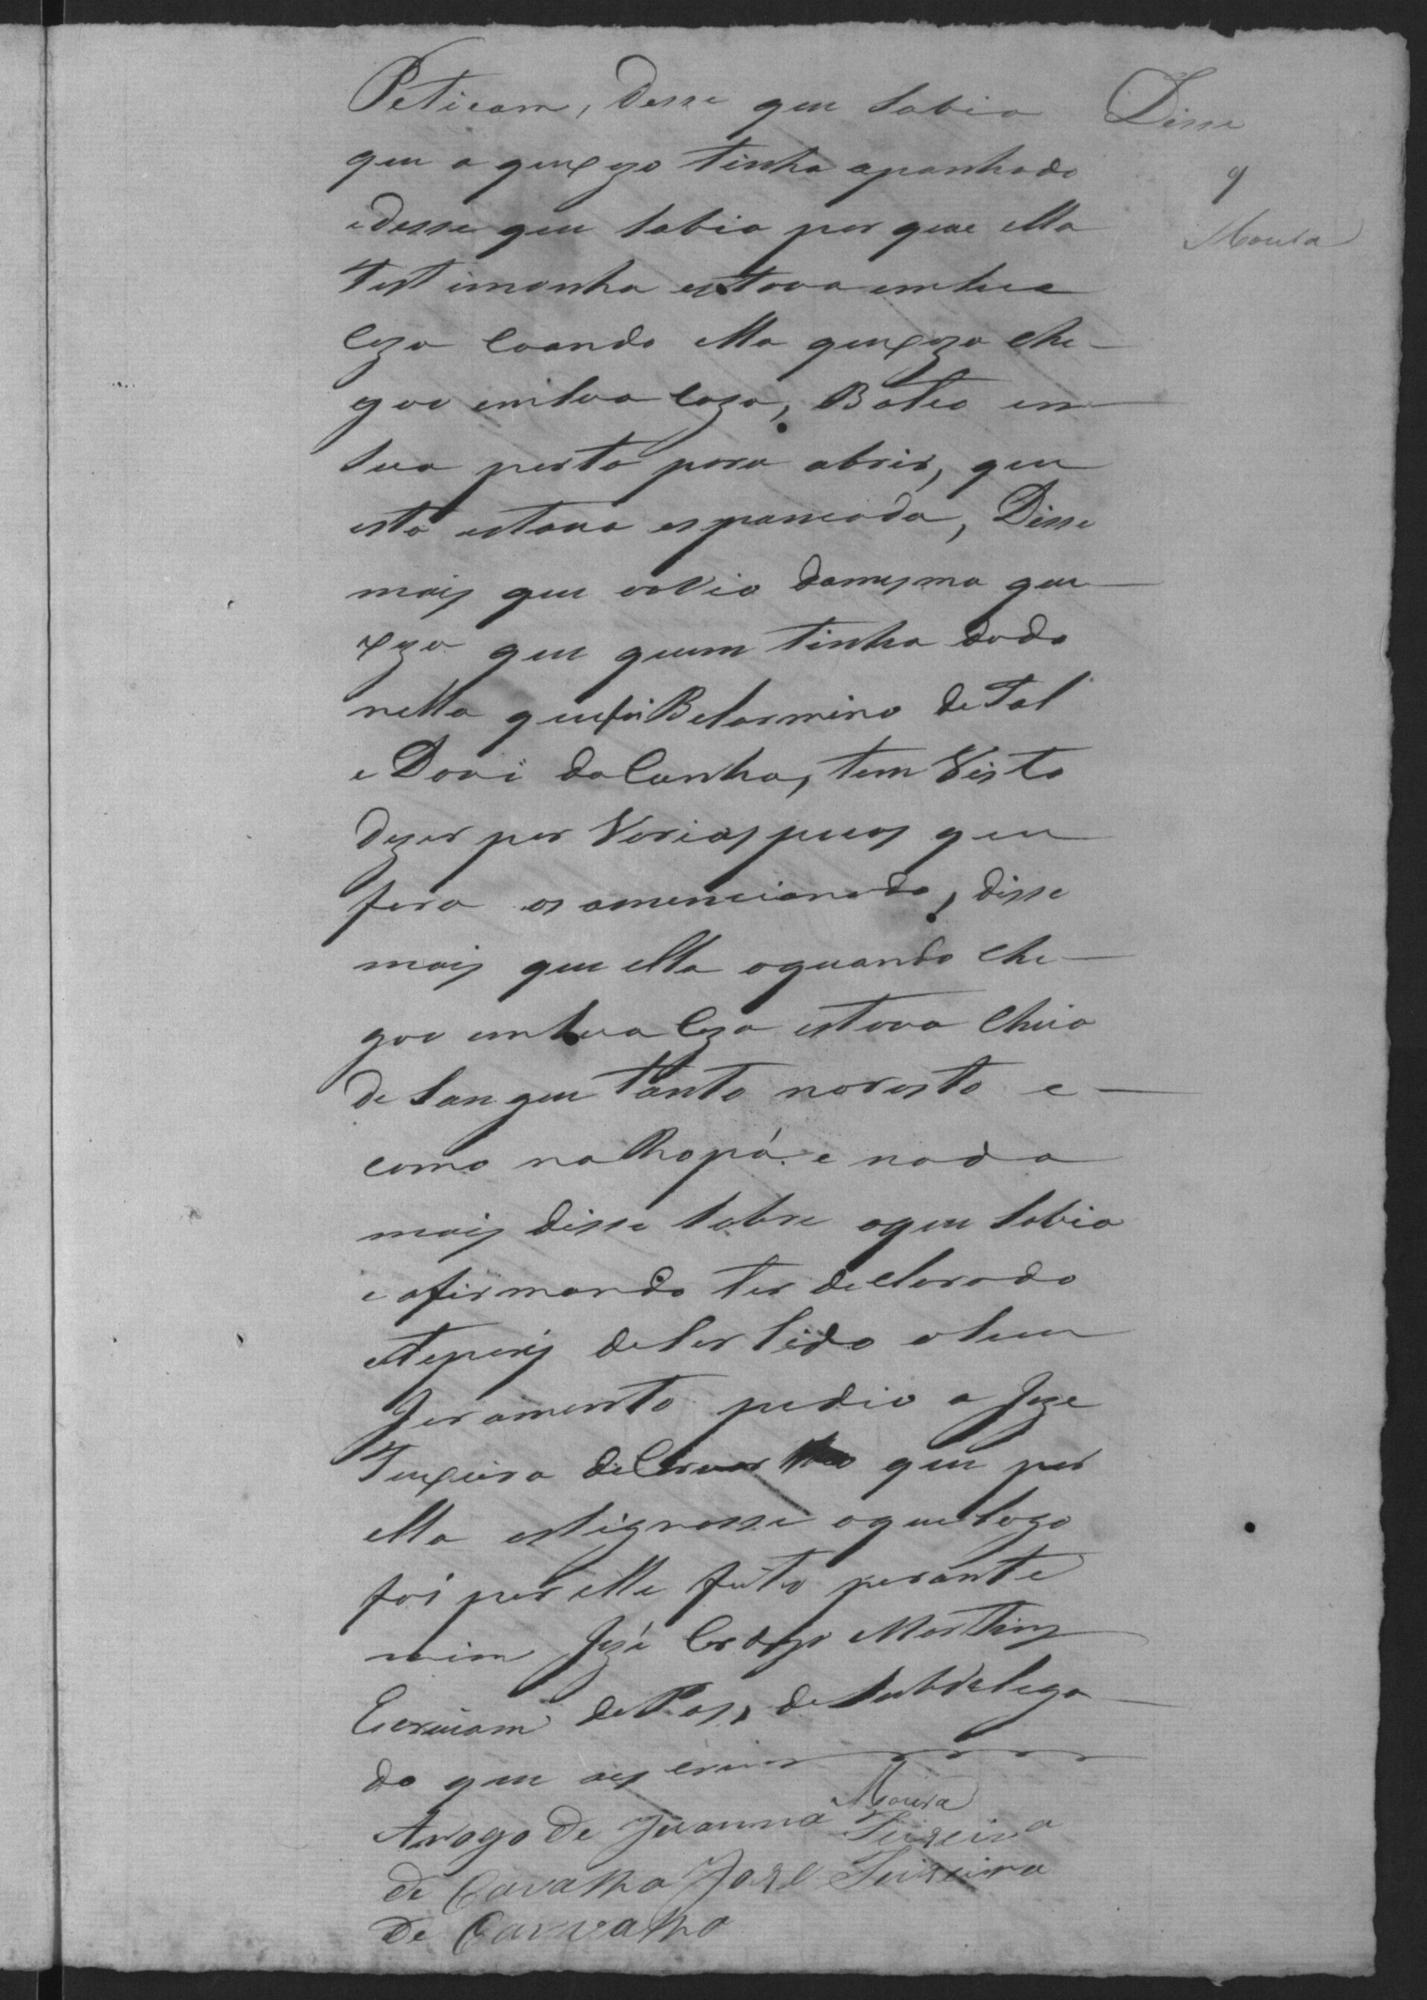 Peticam, desse que sabia
que a queixoza tinha apanhado
edesse que sabia por que ella
testimonha estava emsua
Caza Coando ella queixoza che-
gou emsua Caza, Bateo em
sua porta para abrir, que
esta estava espancada, Disse
mais que ovvio damesma que-
xoza que quem tinha dado
nella que foi Belarmino de Tal
e Davi da Cunha, tem Visto
dizer por Varias pecoas que
fora os amencionado, disse
mais que ella aquando che-
gou emsua Caza estava Cheia
de Sangue tanto norosto e
como na Ropá e nada
mais disse sobre oque sabia
e afirmando ter declarado
edepois deser lido oseu
Juramento pedio a Joze
Teixeira de Carvalho que por
ella asignasse oque logo
foi por elle feito perante
mim José Cardozo Martins
Escrivam de Pas, de subdelega-
do que as escrivi
Moura
Arogo de Juanna Teixeira
de Cavalho Joze Teixeira
de Carvalho
Disse
9
Moura